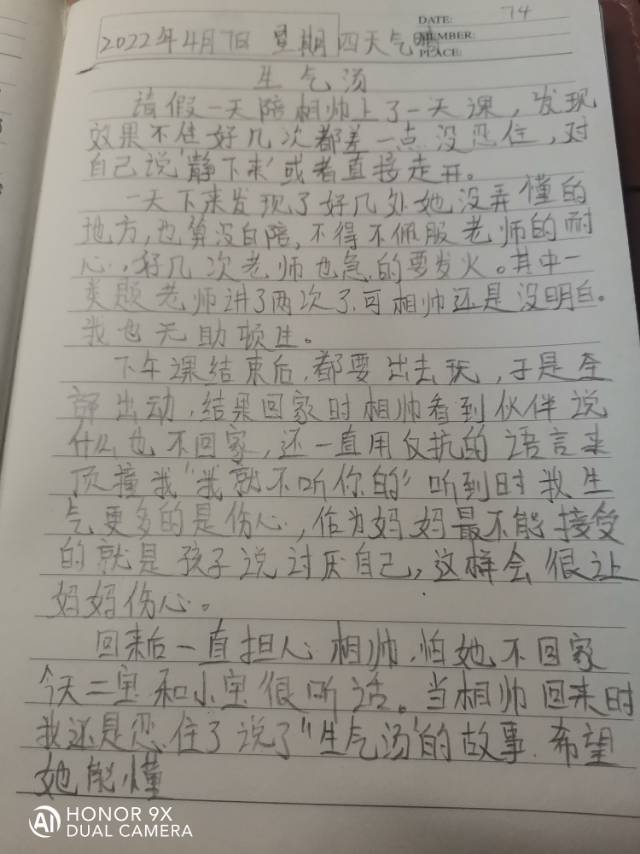 74
DATE:
2022年4月7日 星期四天气晴
MEMBER:
PLACE:
生气汤
请假一天陪相帅上了一天课,发现
效果不佳好几次都差一点没忍住,对
自己说"静下来"或者直接走开。
一天下来发现了好几处她没弄懂的
地方,也算没白陪,不得不佩服老师的耐
心,好几次老师也急的要发火。其中一
类题老师讲了两次了,可相帅还是没明白。
我也无助顿生。
下午课结束后,都要出去玩,于是全
部出动,结果回家时相帅看到伙伴说
什么也不回家,还一直用反抗的语言来
顶撞我"我就不听你的"听到时我生
气更多的是伤心,作为妈妈最不能接受
的就是孩子说讨厌自己,这样会很让
妈妈伤心。
回来后一直担心相帅,怕她不回家
今天二宝和小宝很听话。当相帅回来时
我还是忍住了说了"生气汤"的故事.希望
她能懂
HONOR 9X
DUAL CAMERA